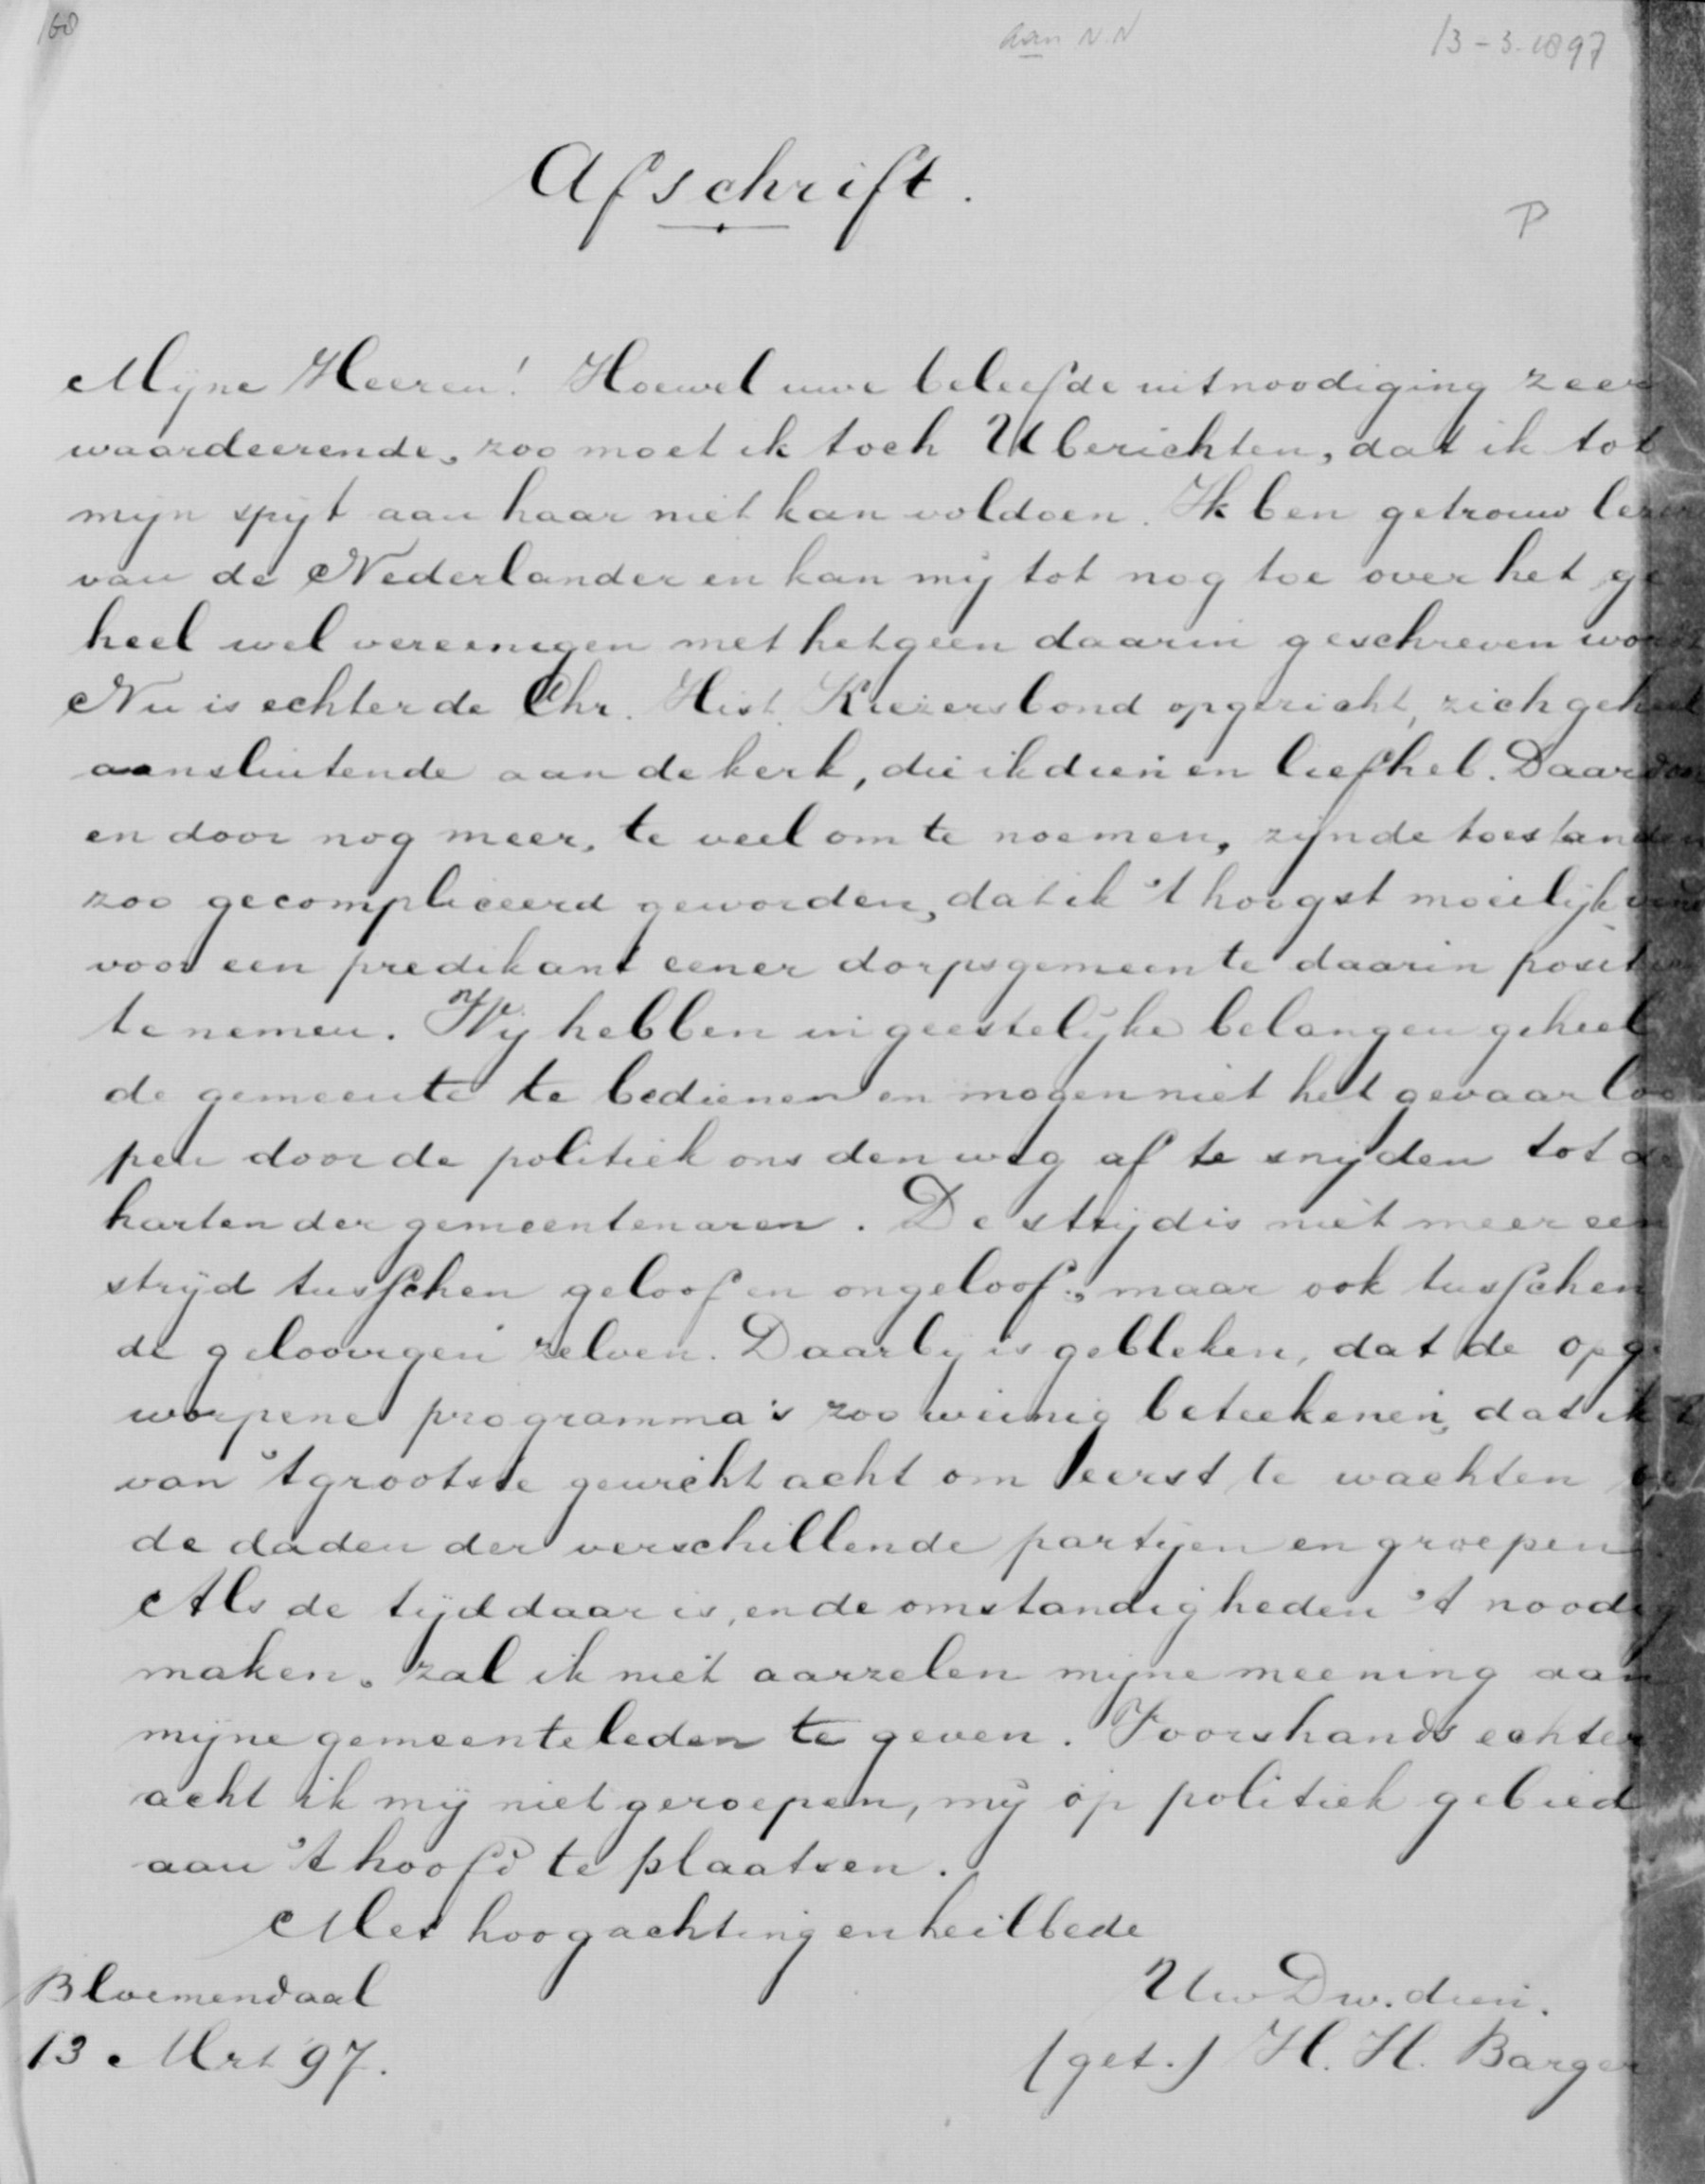 160
aan N.N
13-3-1897
Afschrift.
P
Mijne Heeren! Hoewel uwe beleefde uitnoodiging zeer
waardeerende, zoo moet ik toch U berichten, dat ik tot
mijn spijt aan haar niet kan voldoen. Ik ben getrouw lezer
van de Nederlander en kan mij tot nog toe over het ge
heel wel vereenigen met hetgeen daarin geschreven wordt
Nu is echter de Chr. Hist. Kiezersbond opgericht, zich geheel
aansluitende aan de kerk, die ik dien en liefheb. Daardoor
en door nog meer, te veel om te noemen, zijn de toestanden
zoo gecompliceerd geworden, dat ik 't hoogst moeilijk vind
voor een predikant eener dorpsgemeente daarin positie
te nemen. Wij hebben in geestelijke belangen geheel
de gemeente te bedienen en mogen niet het gevaar loo
pen door de politiek ons den weg af te snijden tot de
harten der gemeentenaren. De strijd is niet meer een
strijd tusschen geloof en ongeloof, maar ook tusschen
de geloovigen zelven. Daarbij is gebleken, dat de opge
worpene programma's zoo weinig beteekenen, dat ik 't
van 't grootste gewicht acht om eerst te wachten op
de daden der verschillende partijen en groepen.
Als de tijd daar is, en de omstandigheden 't noodig
maken, zal ik niet aarzelen mijne meening aan
mijne gemeenteleden te geven. Voorshands echter
acht ik mij niet geroepen, mij op politiek gebied
aan 't hoofd te plaatsen.
Met hoogachting en heilbede
Bloemendaal
Uw Dw. dien.
13 Mrt 97.
(get.) H. H. Barger